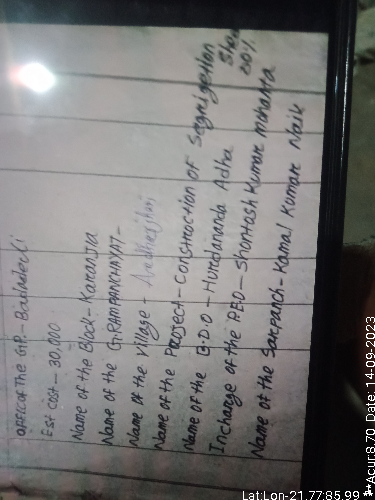 OFFICE OF THE G.P. - Baliadevli
Est Cost - 30,000
Name of the Block - Karanjia
Name of the GRAMPANCHAYAT -
Name of the Village -
Name of the Project - Construction of Segregation Shed
Name of the B.D.O - Hurdananda Adha 20%
Incharge of the PEO - Shontosh Kumar mohanta
Name of the Sarpanch - Kamal Kumar Naik
Lat:Lon-21.77:85.99 **Acur:8.70 Date:14-09-2023